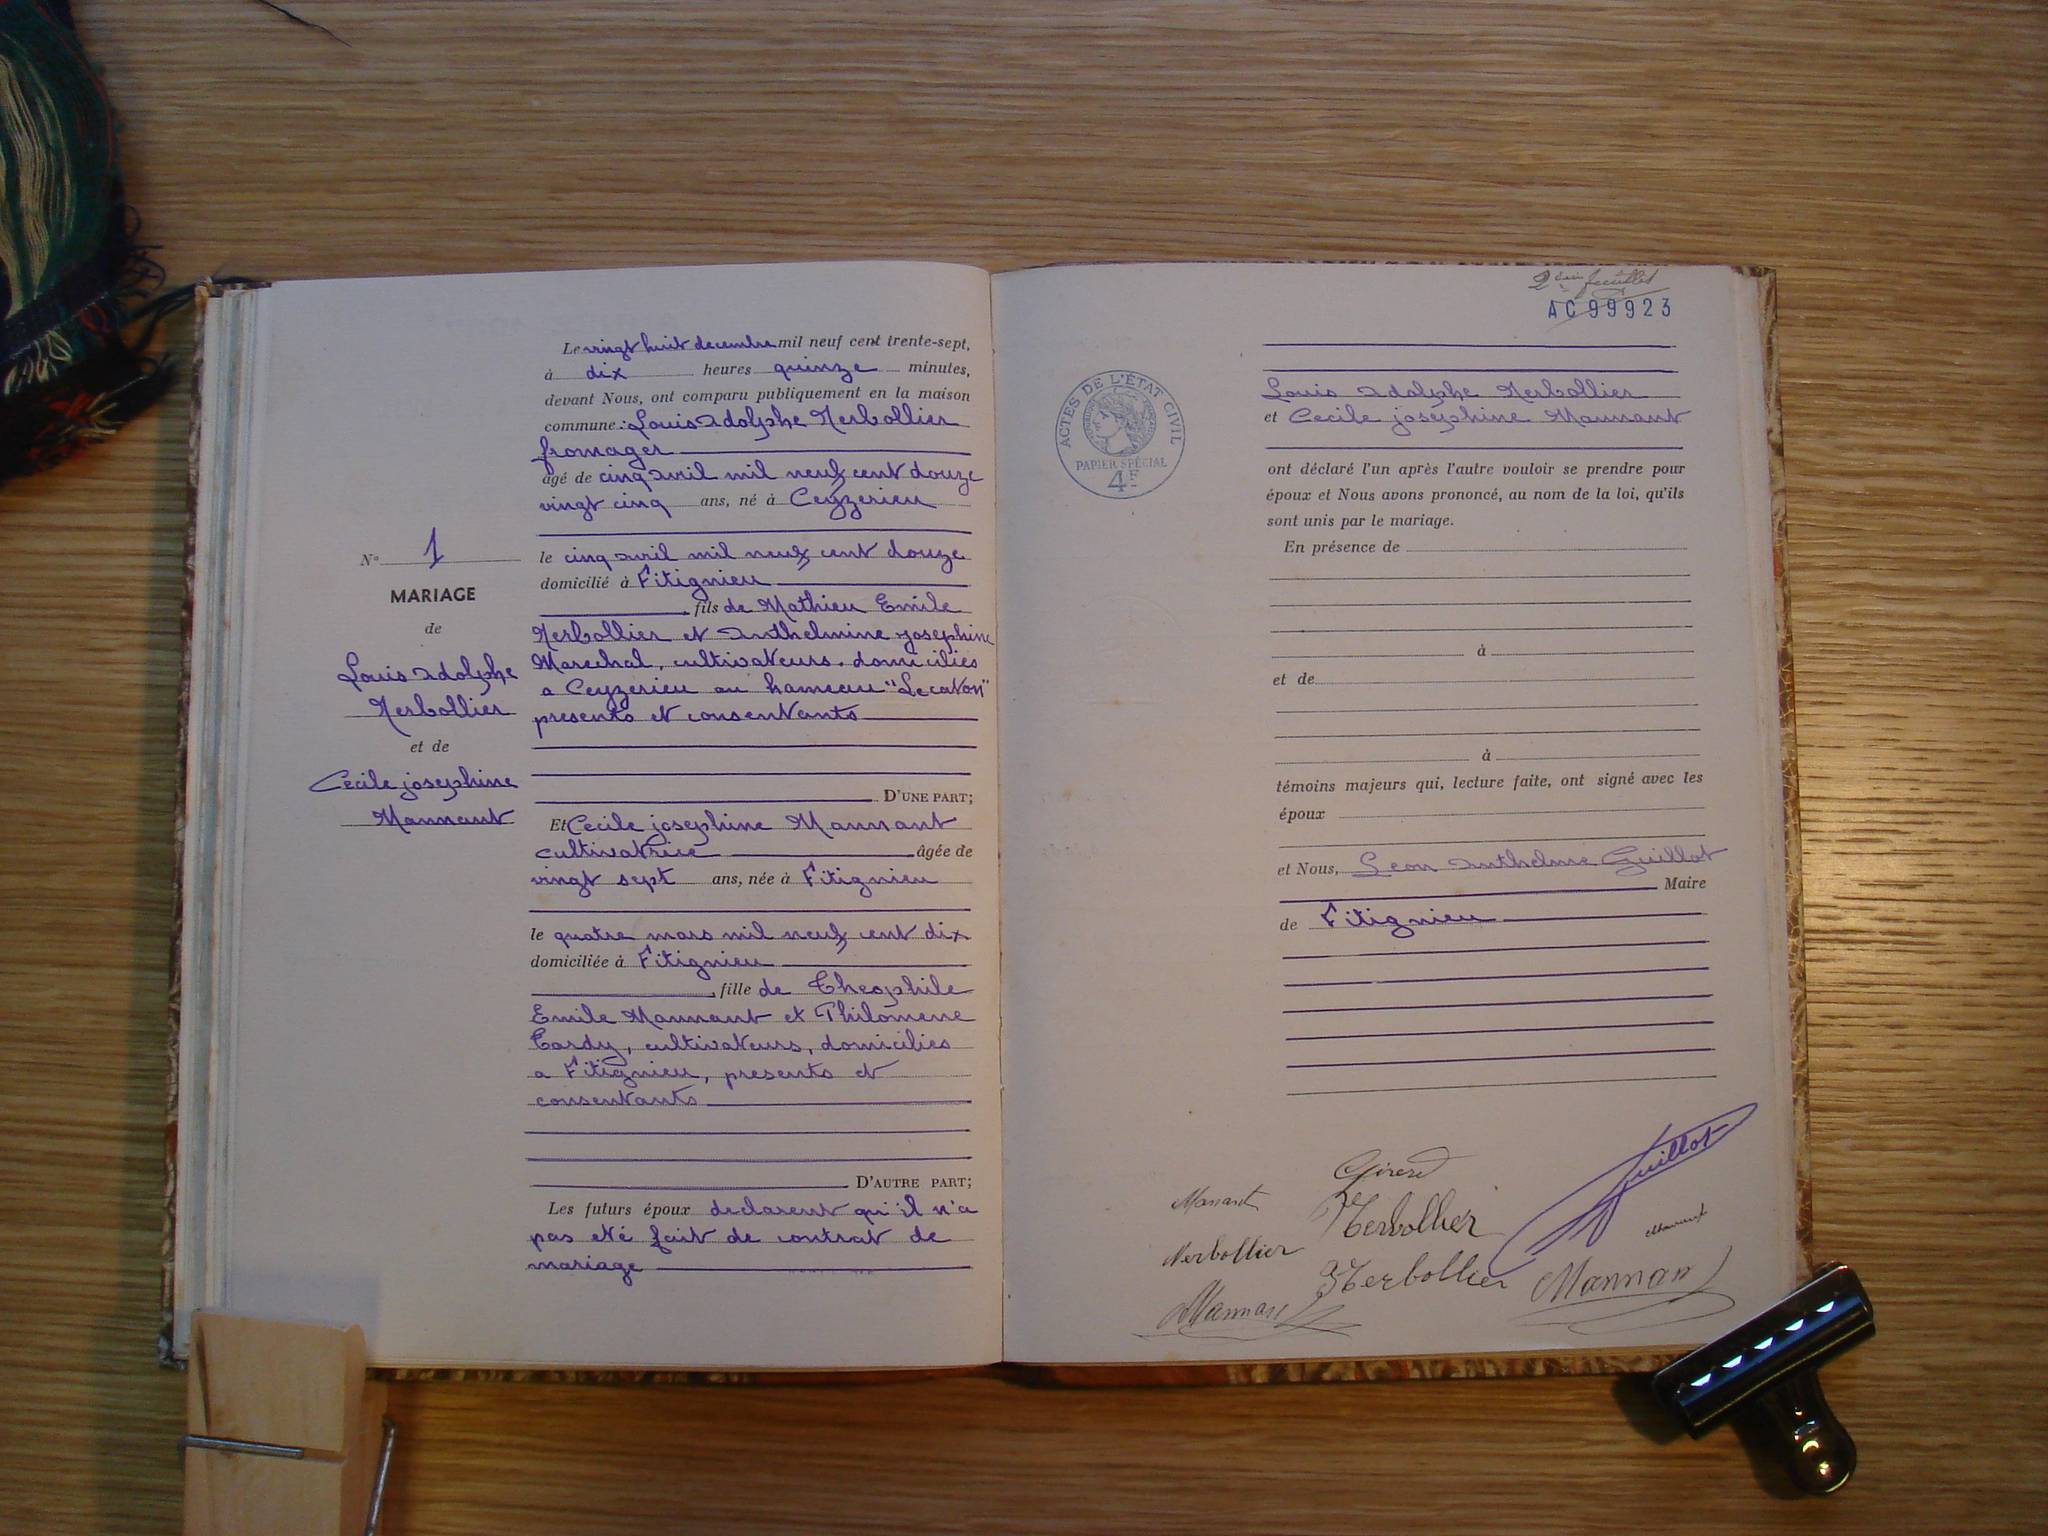 Le vingt huit decembre mil neuf cent trente-sept,
à dix heures quinze minutes,
devant Nous, ont comparu publiquement en la maison
commune : Louis Adolphe Herbollier
fromager
âgé de cinq avril mil neuf cent douze
vingt cinq ans, né à Ceyzerieu
le cinq avril mil neuf cent douze
domicilié à Fitignieu
fils de Mathieu Emile
Herbollier et Anthelmine josephine
Marechal, cultivateurs. domicilies
a Ceyzerieu au hameau "Le caton"
presents et consentants
D'UNE PART;
N° 1
MARIAGE
de
Louis Adolphe
Herbollier
et de
Cecile josephine
Mannant
Et Cecile josephine Mannant
cultivatrice âgée de
vingt sept ans, née à Fitignieu
le quatre mars mil neuf cent dix
domiciliée à Fitignieu
, fille de Theophile
Emile Mannant et Philomene
Tardy, cultivateurs, domicilies
a Fitignieu, presents et
consentants
D'AUTRE PART;
Les futurs époux declarent qu'il n'a
pas eté fait de contrat de
mariage
2ème feuillet
AC 99923
ACTES DE L'ÉTAT CIVIL
PAPIER SPÉCIAL
4F
Louis Adolphe Herbollier
et Cecile josephine Mannant
ont déclaré l'un après l'autre vouloir se prendre pour
époux et Nous avons prononcé, au nom de la loi, qu'ils
sont unis par le mariage.
En présence de
à
et de
à
témoins majeurs qui, lecture faite, ont signé avec les
époux
et Nous, Leon Anthelme Guillot
Maire
de Fitignieu
Girerd
Guillot
Manant
Herbollier
Herbollier
Herbollier
Mannant
Mannant